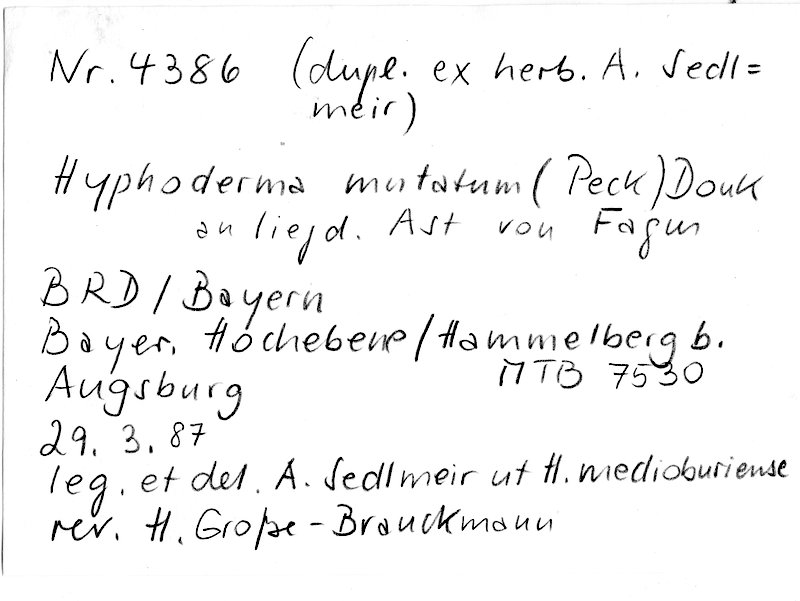 Nr. 4386 (dupl. ex herb. A. Sedl=
meir)
Hyphoderma mutatum (Peck) Donk
an liegd. Ast von Fagus
BRD / Bayern
Bayer. Hochebene / Hammelberg b.
Augsburg MTB 7530
29. 3. 87
leg. et det. A. Sedlmeir ut H. medioburiense
rev. H. Große-Brauckmann